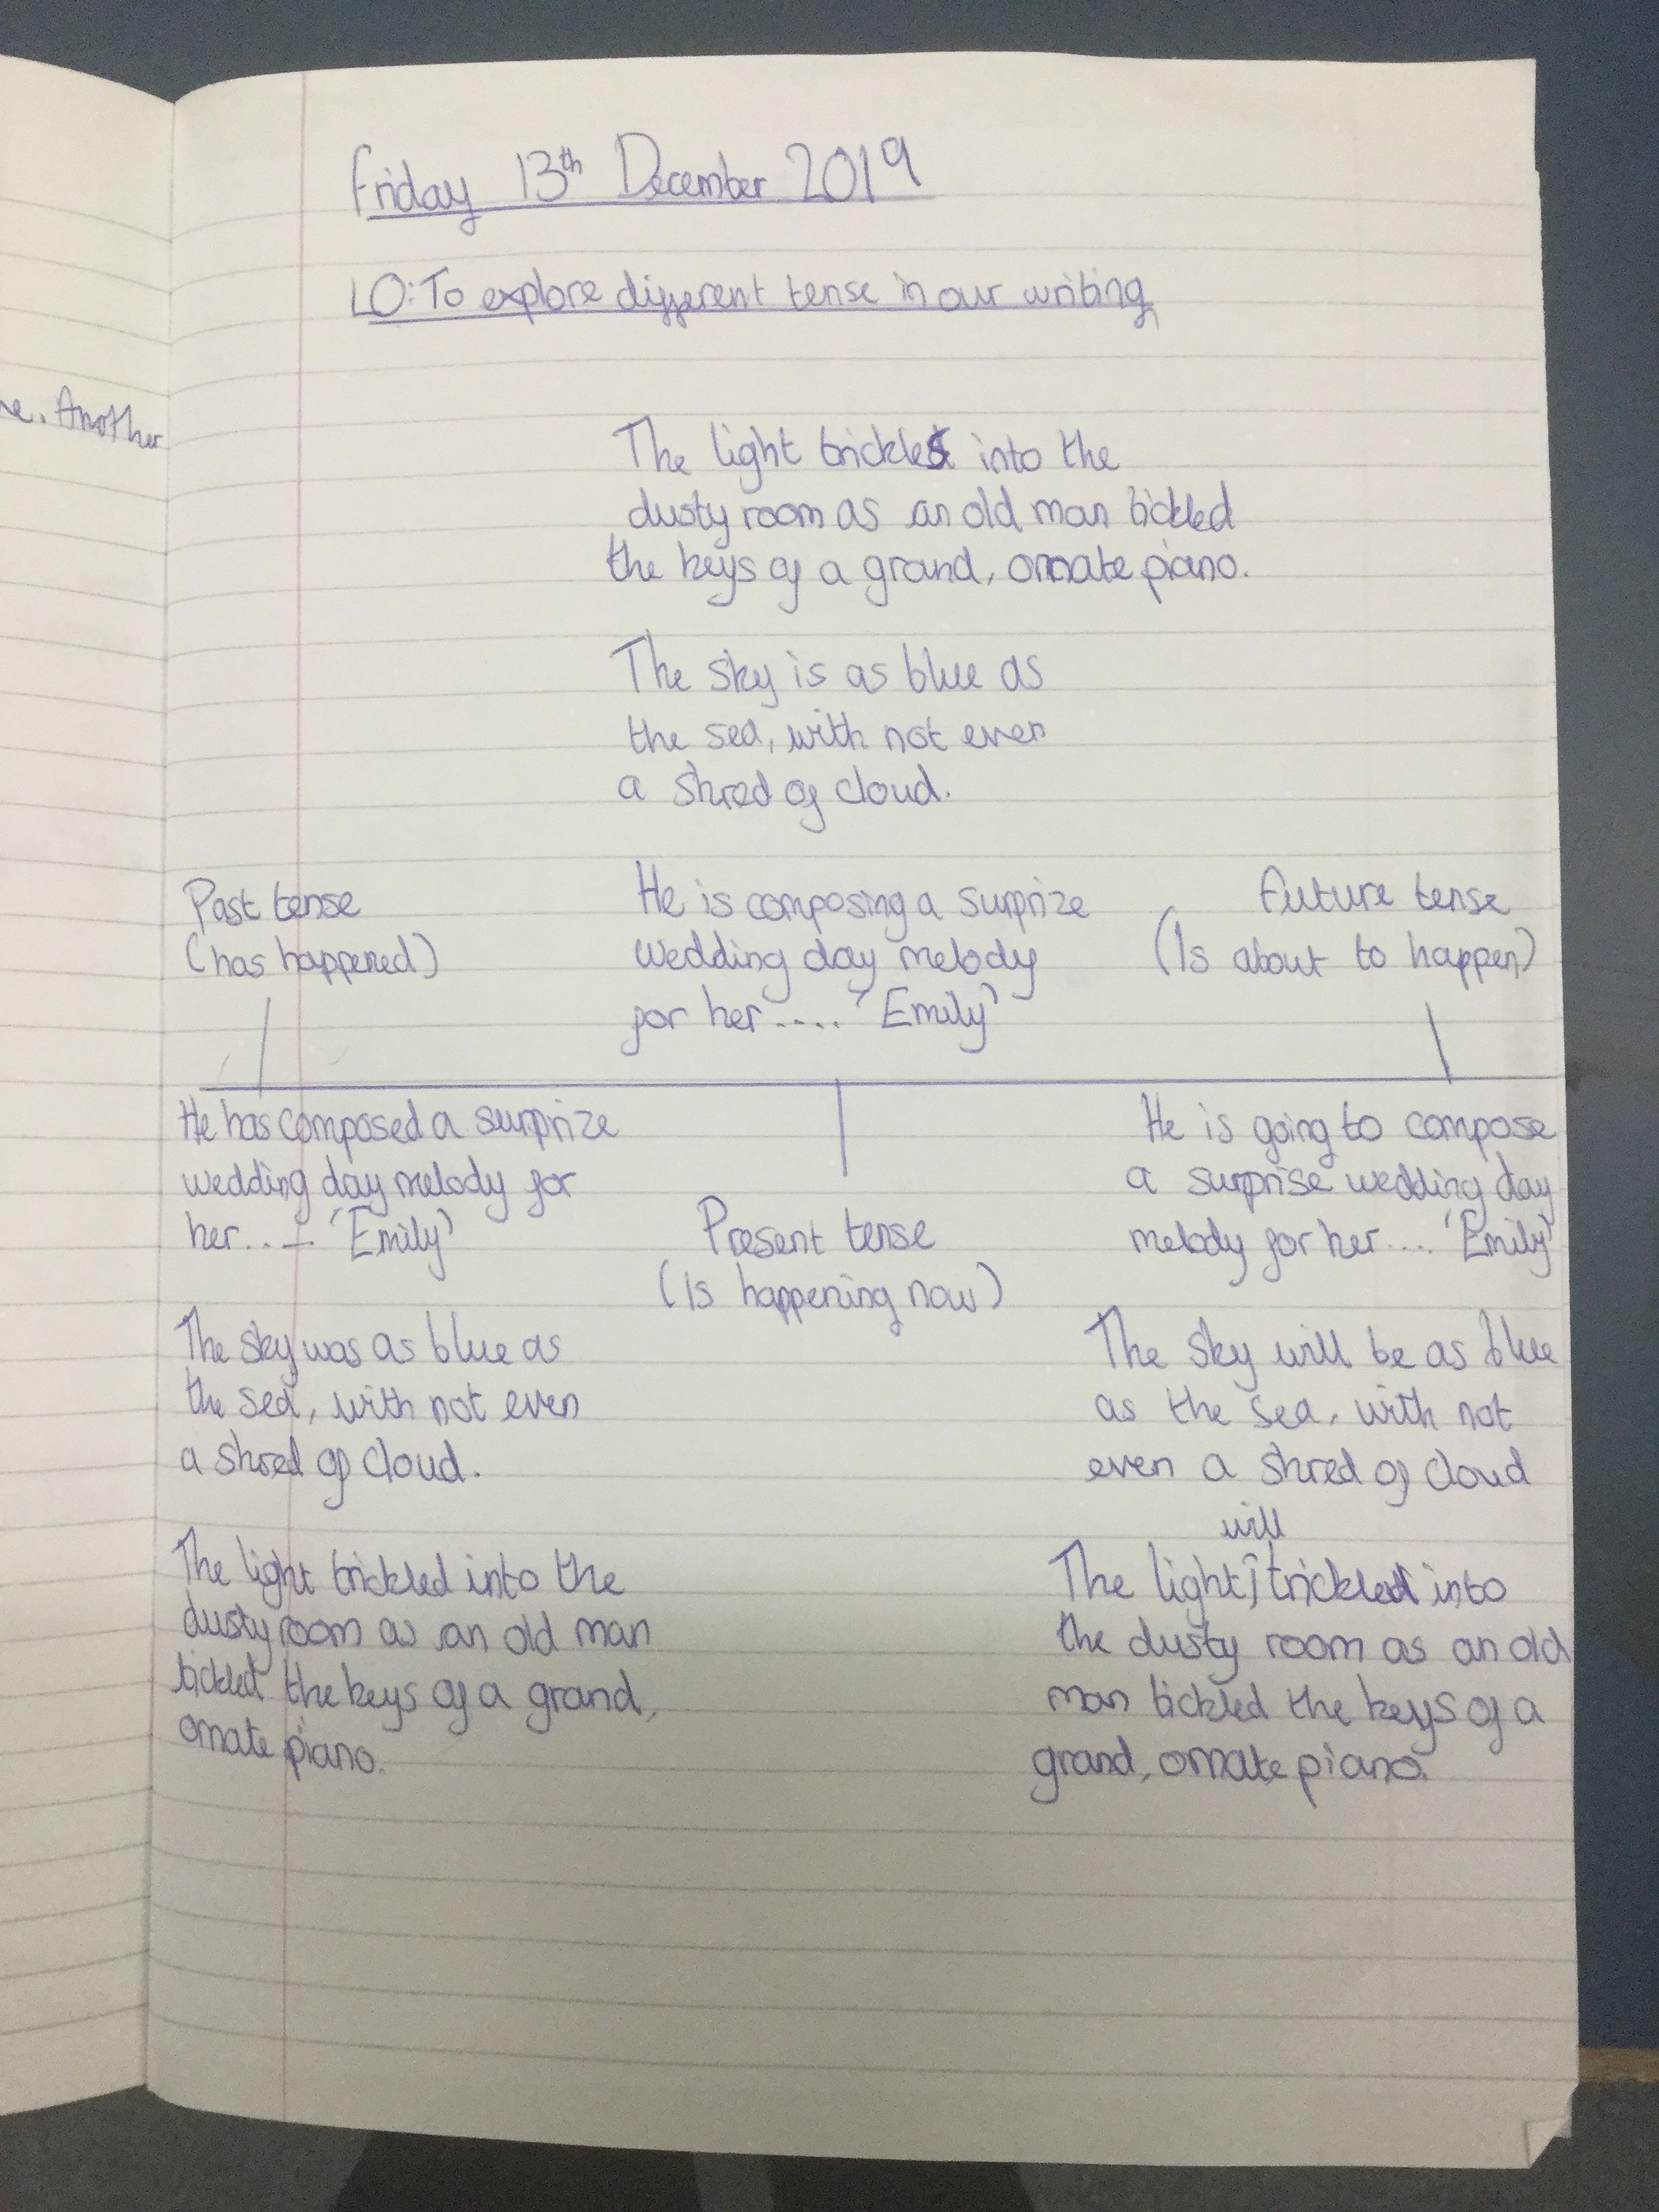 Friday 13th December 2019
LO: To explore different tense in our writing
ne. Another
The light trickles into the
dusty room as an old man tickled
the keys of a grand, ornate piano.
The sky is as blue as
the sea, with not even
a shred of cloud.
Past tense
(has happened)
He is composing a surprize
wedding day melody
for her.... 'Emily'
Future tense
(Is about to happen)
He has composed a surprize
wedding day melody for
her.... 'Emily'
Present tense
(Is happening now)
He is going to compose
a surprise wedding day
melody for her.... 'Emily'
The sky was as blue as
the sea, with not even
a shred of cloud.
The sky will be as blue
as the sea, with not
even a shred of cloud
The light trickled into the
dusty room as an old man
tickled the keys of a grand,
ornate piano.
will
The light trickle into
the dusty room as an old
man tickled the keys of a
grand, ornate piano.